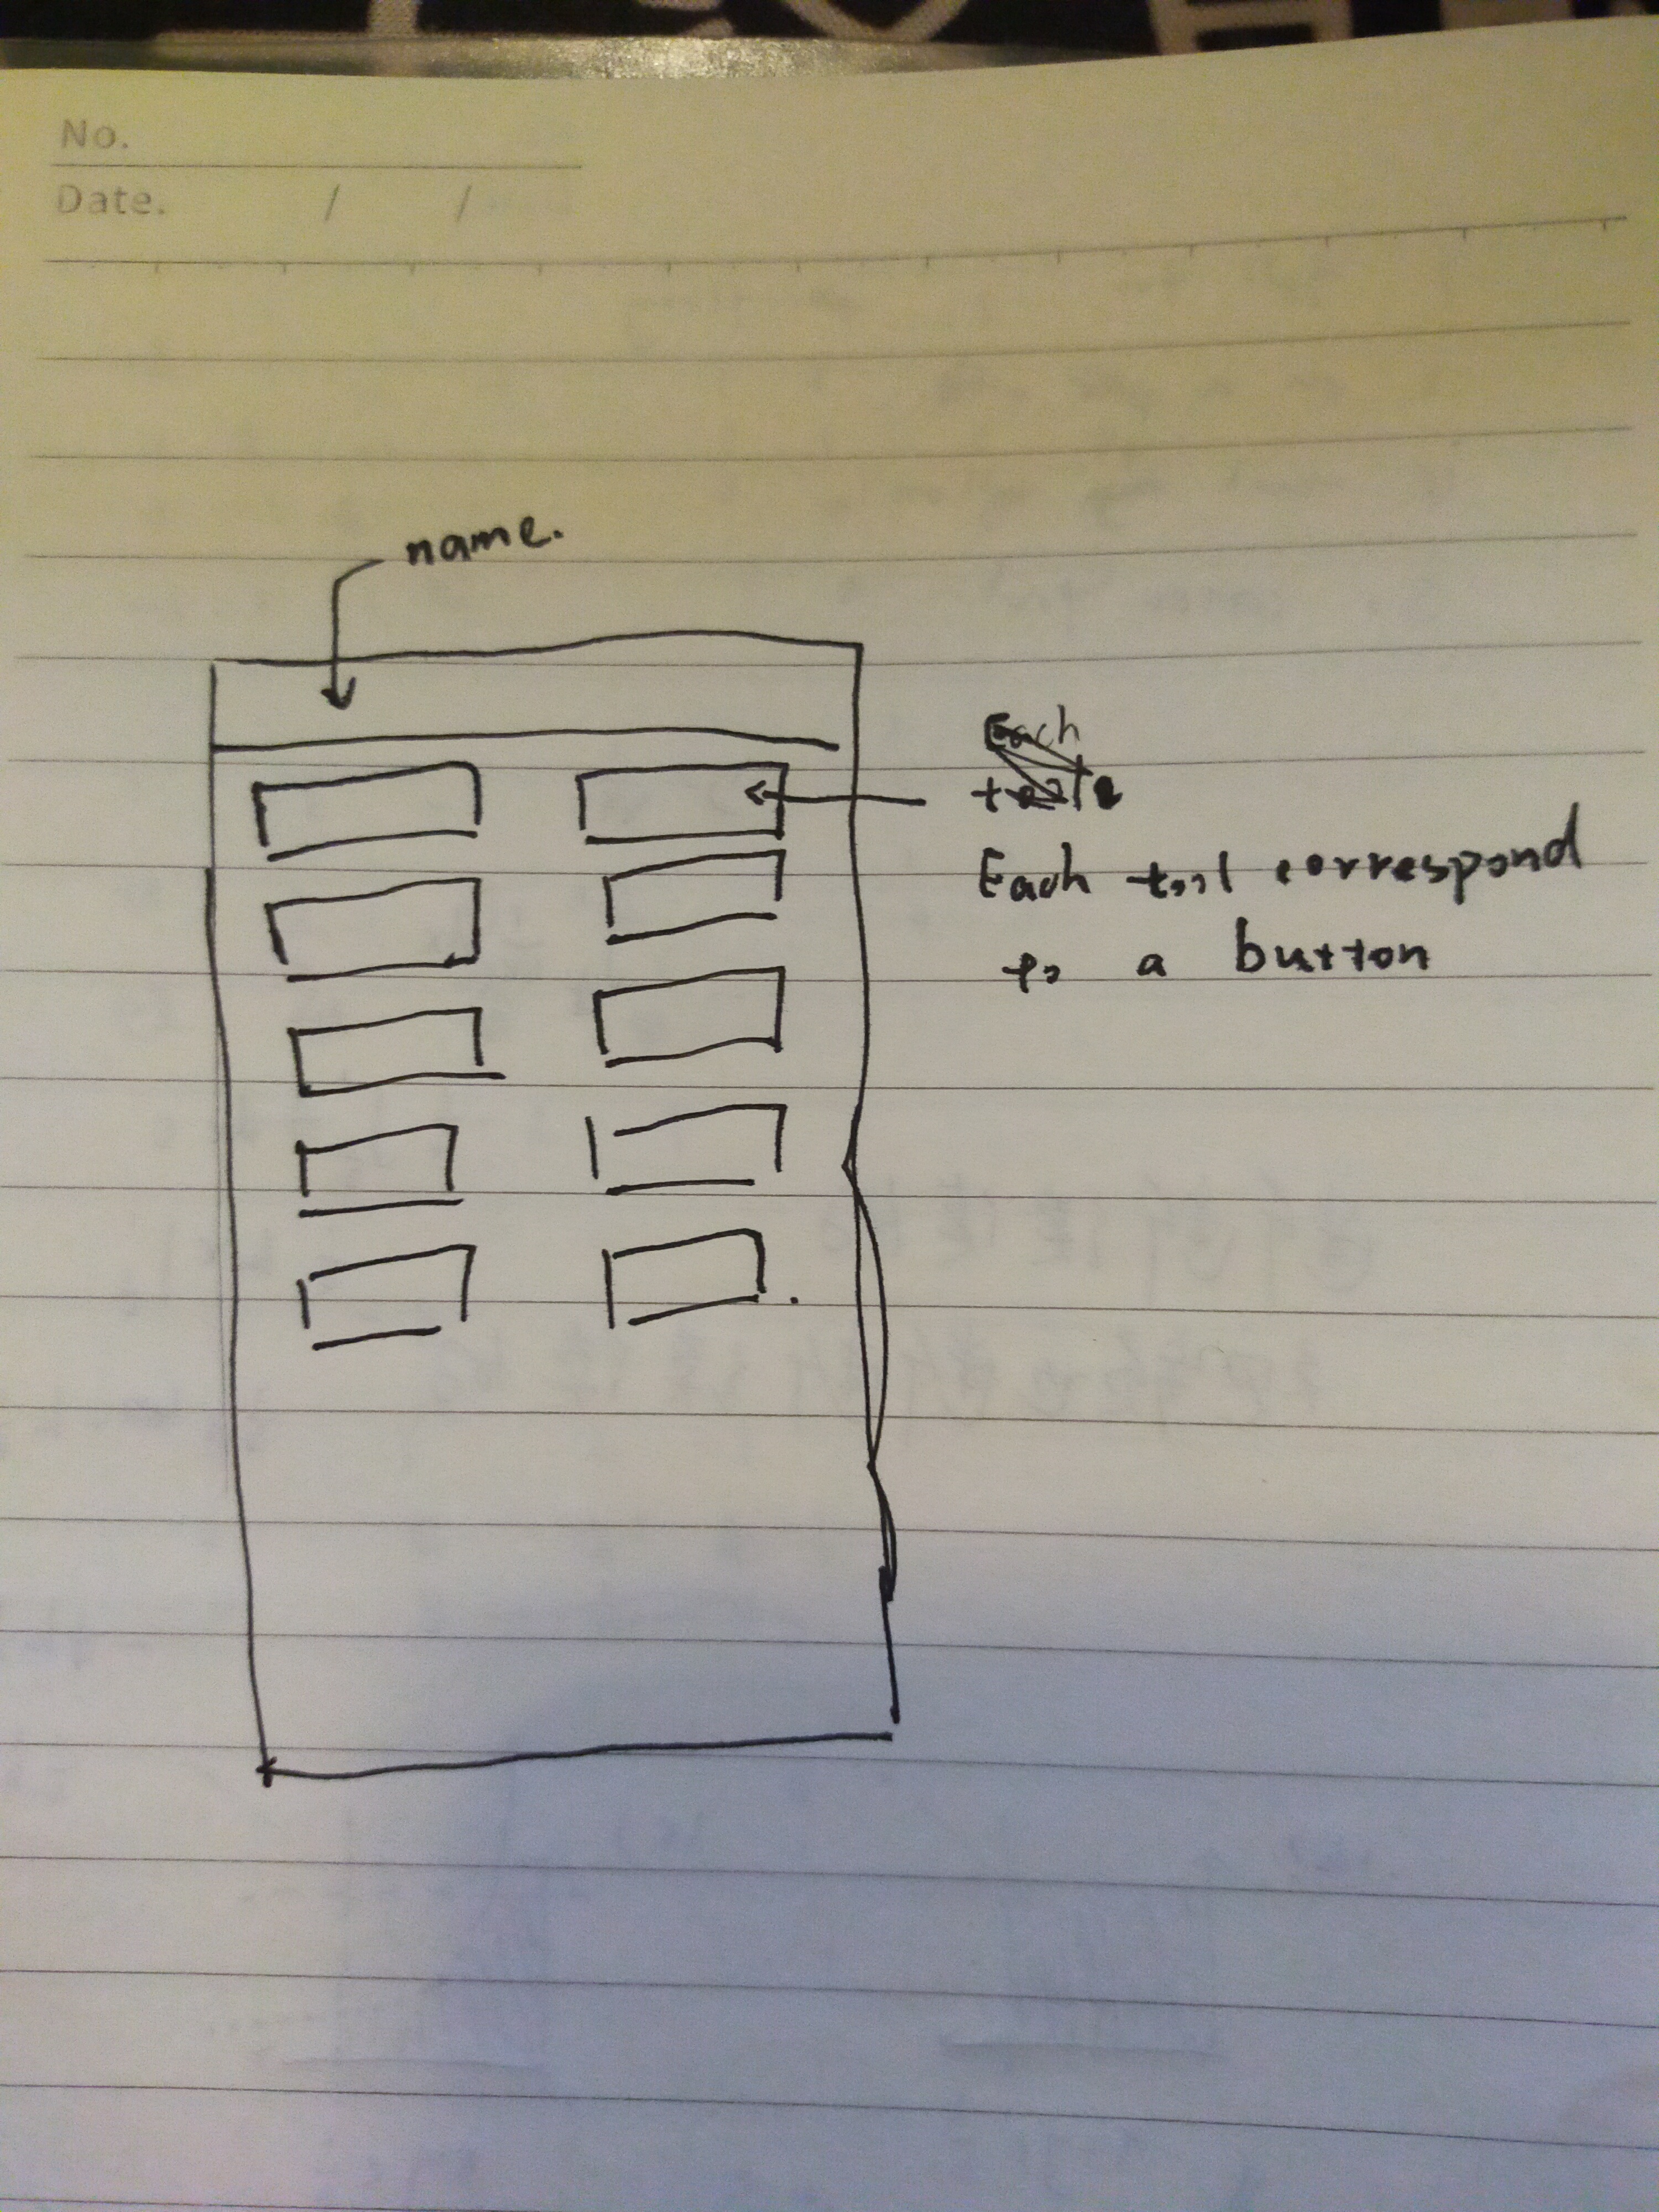 No.
Date. / /
name.
Each
Each tool correspond
to a button